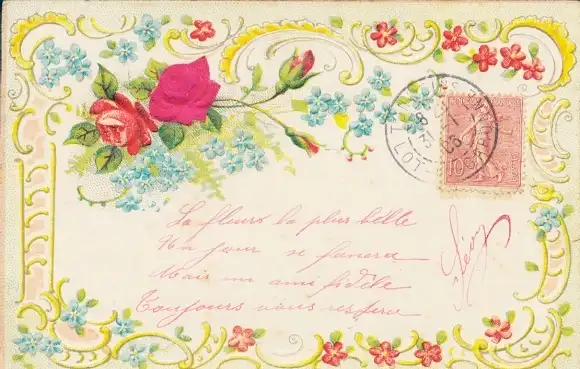 La fleurs la plus belle
Un jour se fanera
Mais un ami fidèle
Toujours vous restera
LOT
10